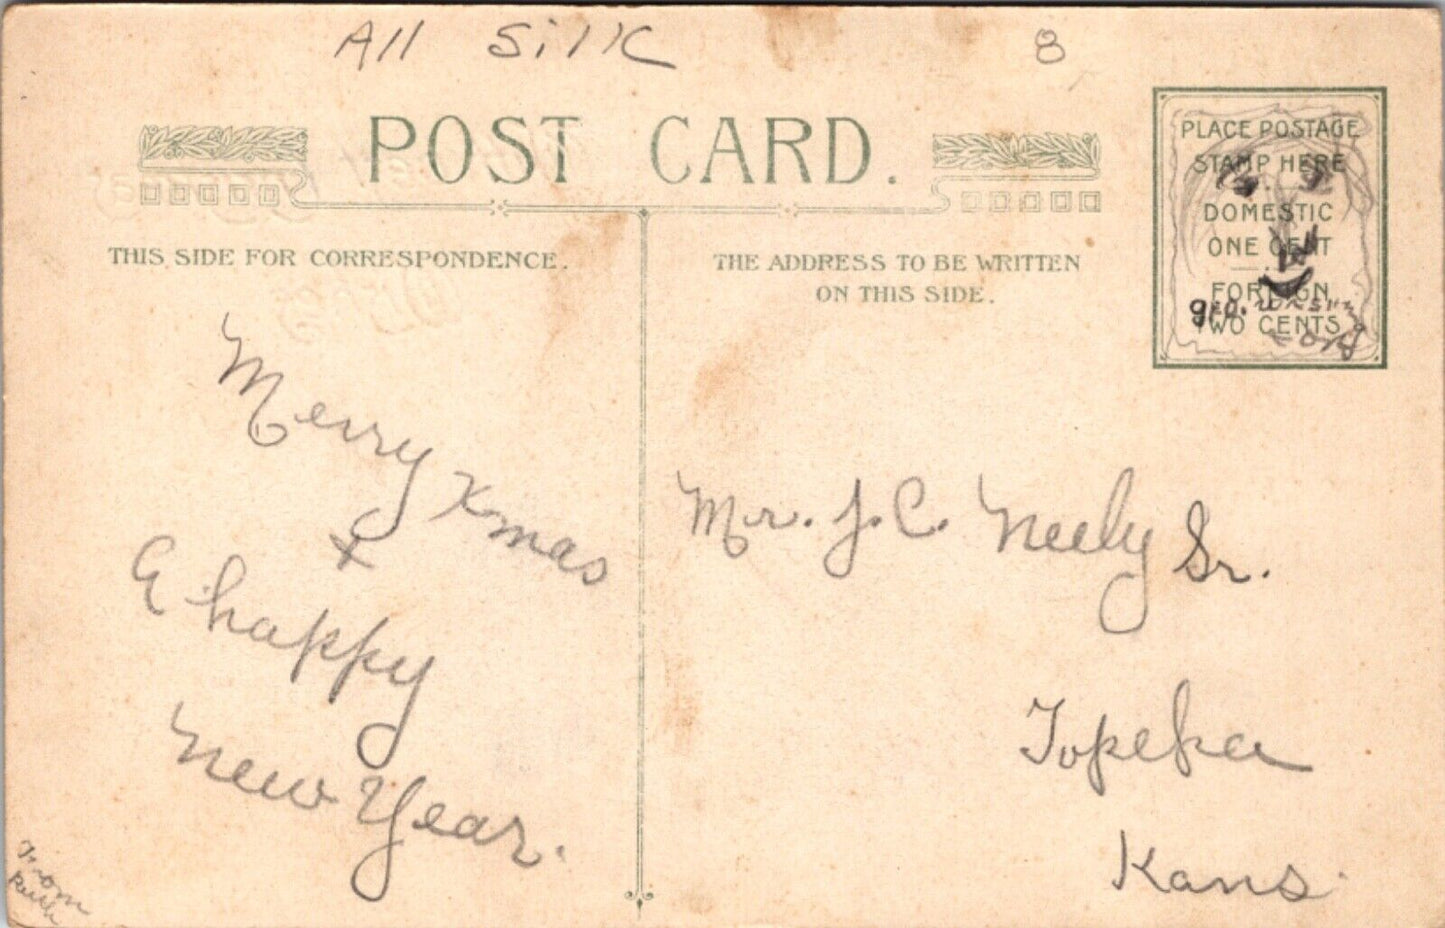 All Silk 8
POST CARD.
THIS SIDE FOR CORRESPONDENCE.
THE ADDRESS TO BE WRITTEN
ON THIS SIDE.
PLACE POSTAGE
STAMP HERE
DOMESTIC
ONE CENT
FOREIGN
TWO CENTS
Geo.
Merry Xmas
+
A happy
New Year.
From
Ruth
Mr. J. C. Neely Sr.
Topeka
Kans.